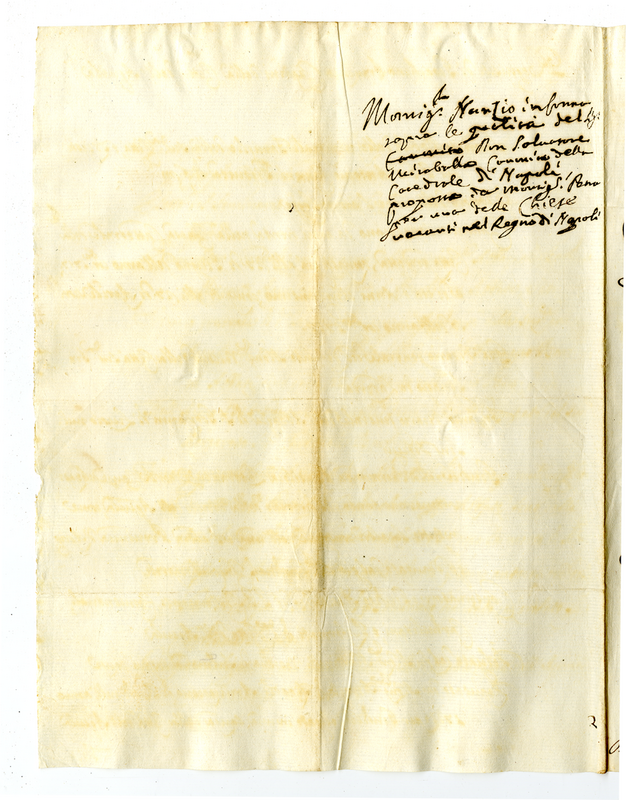 Monsig.r Nunzio informa
sopra le qualità del Sig.r
Canonico Don Salvatore
Mirabella Canonico della
Catedrale di Napoli
proposto da Monsig.r
per una delle Chiese
vacanti nel Regno di Napoli
2